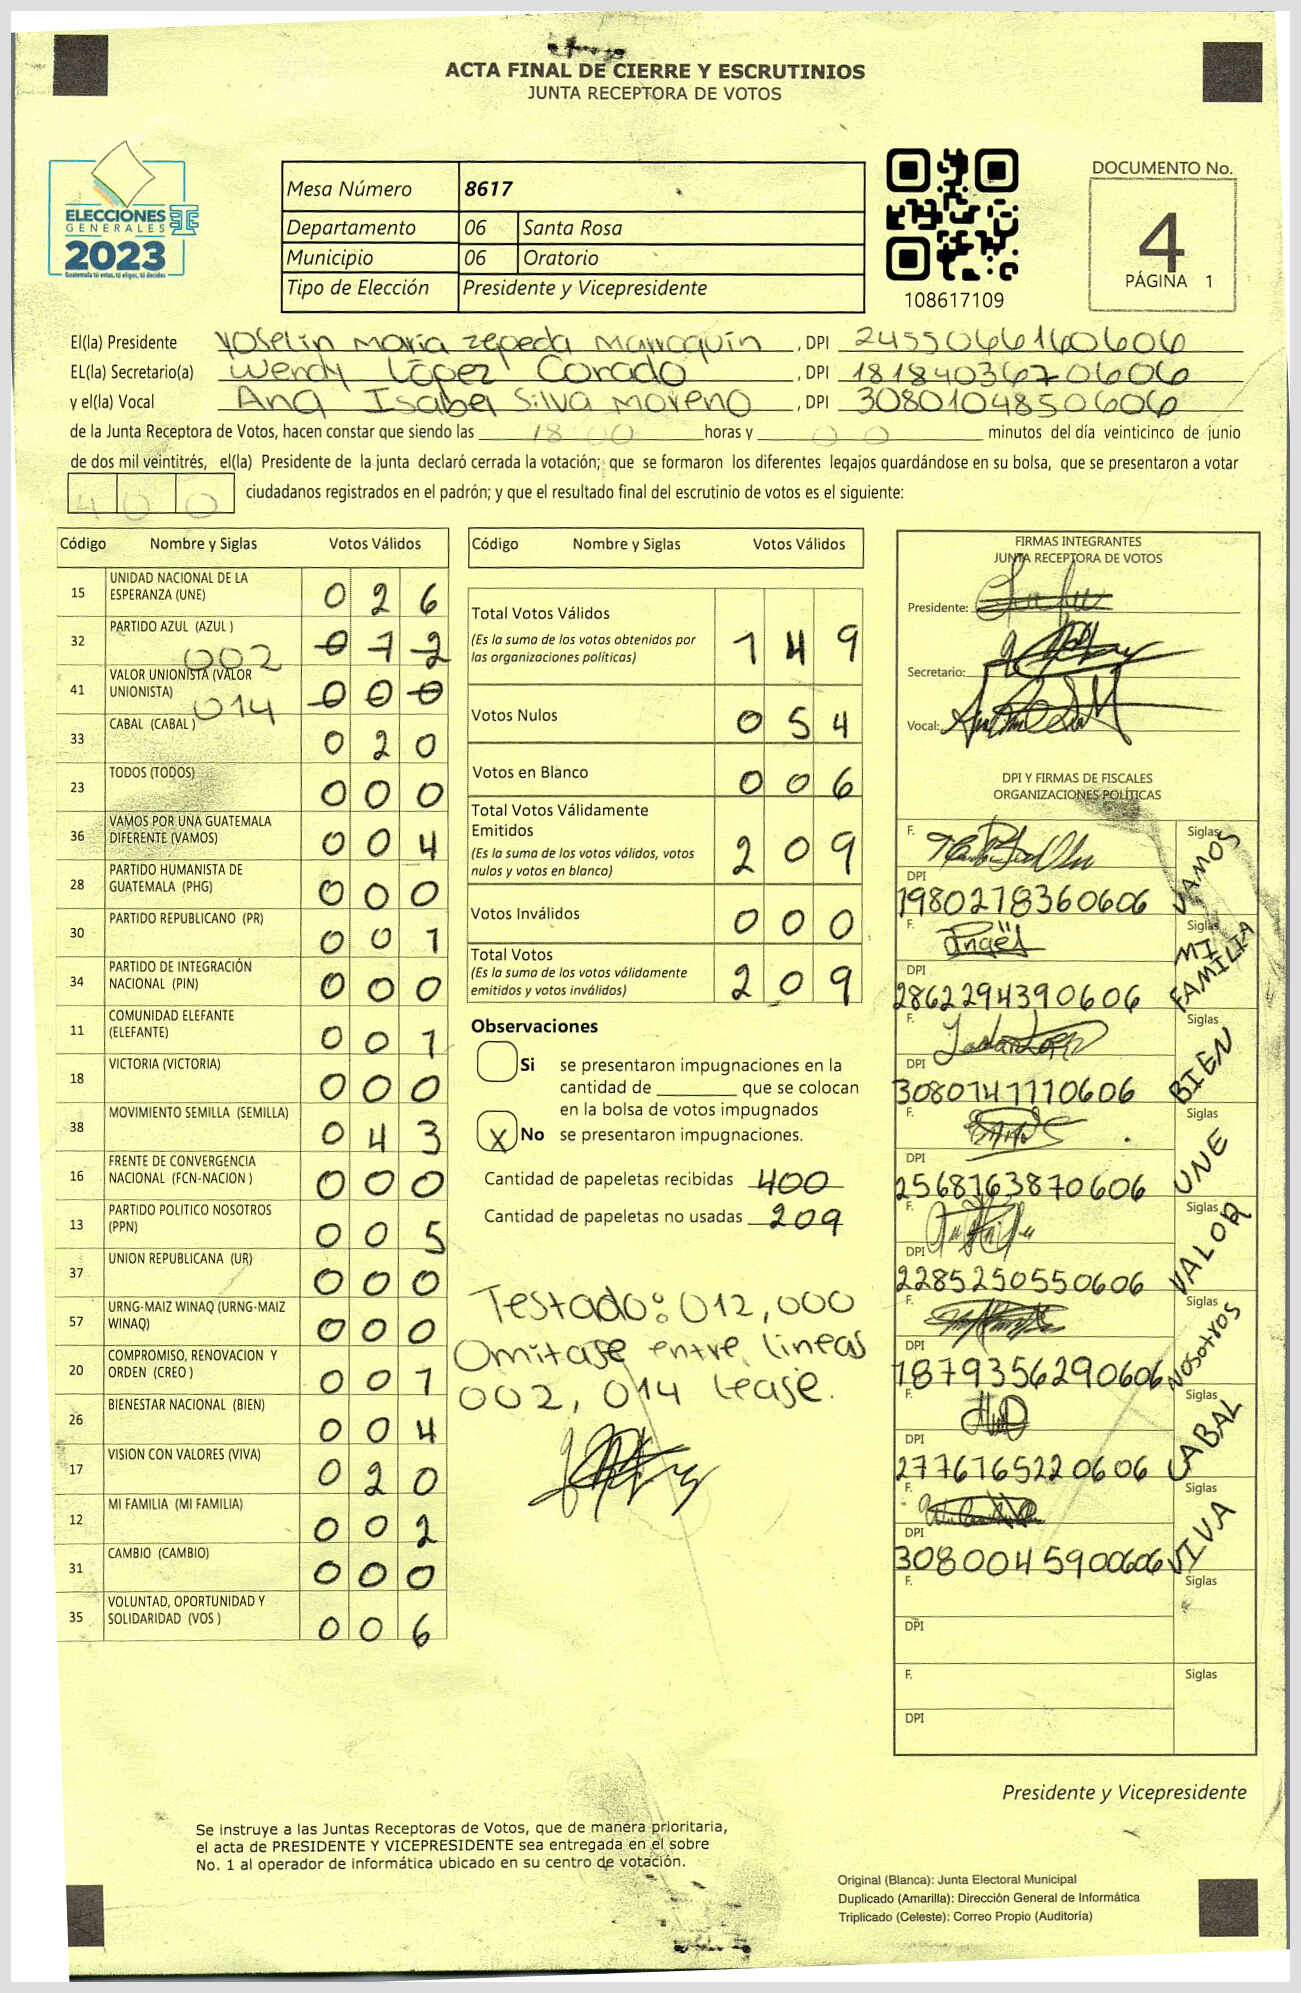 ACTA FINAL DE CIERRE Y ESCRUTINIOS
JUNTA RECEPTORA DE VOTOS
ELECCIONES
GENERALES
2023
Guatemala tú votas, tú eliges, tú decides
Mesa Número 8617
Departamento 06 Santa Rosa
Municipio 06 Oratorio
Tipo de Elección Presidente y Vicepresidente
108617109
DOCUMENTO No.
4
PÁGINA 1
El(la) Presidente Yoselin María Zepeda Marroquín , DPI 2455066160606
EL(la) Secretario(a) Wendy López Corado , DPI 1818403670606
y el(la) Vocal Ana Isabel Silva Moreno , DPI 3080104850606
de la Junta Receptora de Votos, hacen constar que siendo las 18 00 horas y 00 minutos del día veinticinco de junio
de dos mil veintitrés, el(la) Presidente de la junta declaró cerrada la votación; que se formaron los diferentes legajos quardándose en su bolsa, que se presentaron a votar
400 ciudadanos registrados en el padrón; y que el resultado final del escrutinio de votos es el siguiente:
Código Nombre y Siglas Votos Válidos
15 UNIDAD NACIONAL DE LA ESPERANZA (UNE) 026
32 PARTIDO AZUL (AZUL ) 012
002
41 VALOR UNIONISTA (VALOR UNIONISTA) 000
014
33 CABAL (CABAL ) 020
23 TODOS (TODOS) 000
36 VAMOS POR UNA GUATEMALA DIFERENTE (VAMOS) 004
28 PARTIDO HUMANISTA DE GUATEMALA (PHG) 000
30 PARTIDO REPUBLICANO (PR) 001
34 PARTIDO DE INTEGRACIÓN NACIONAL (PIN) 000
11 COMUNIDAD ELEFANTE (ELEFANTE) 001
18 VICTORIA (VICTORIA) 000
38 MOVIMIENTO SEMILLA (SEMILLA) 043
16 FRENTE DE CONVERGENCIA NACIONAL (FCN-NACION ) 000
13 PARTIDO POLITICO NOSOTROS (PPN) 005
37 UNION REPUBLICANA (UR) 000
57 URNG-MAIZ WINAQ (URNG-MAIZ WINAQ) 000
20 COMPROMISO, RENOVACION Y ORDEN (CREO ) 001
26 BIENESTAR NACIONAL (BIEN) 004
17 VISION CON VALORES (VIVA) 020
12 MI FAMILIA (MI FAMILIA) 002
31 CAMBIO (CAMBIO) 000
35 VOLUNTAD, OPORTUNIDAD Y SOLIDARIDAD (VOS ) 006
Código Nombre y Siglas Votos Válidos
Total Votos Válidos 149
(Es la suma de los votos obtenidos por
las organizaciones politicas)
Votos Nulos 054
Votos en Blanco 006
Total Votos Válidamente
Emitidos 209
(Es la suma de los votos válidos, votos
nulos y votos en blanco)
Votos Inválidos 000
Total Votos 209
(Es la suma de los votos válidamente
emitidos y votos inválidos)
Observaciones
Si se presentaron impugnaciones en la
cantidad de ________ que se colocan
en la bolsa de votos impugnados
X No se presentaron impugnaciones.
Cantidad de papeletas recibidas 400
Cantidad de papeletas no usadas 209
Testado: 012,000
Omitase entre lineas
002, 014 Lease.
FIRMAS INTEGRANTES
JUNTA RECEPTORA DE VOTOS
Presidente:
Secretario:
Vocal:
DPI Y FIRMAS DE FISCALES
ORGANIZACIONES POLÍTICAS
F. Siglas VAMOS
DPI 1980278360606
F. Angel Siglas MI FAMILIA
DPI 2862294390606
F. Siglas BIEN
DPI 3080747770606
F. Siglas UNE
DPI 2568763870606
F. Siglas VALOR
DPI 2285250550606
F. Siglas NOSOTROS
DPI 1879356290606
F. Siglas CABAL
DPI 2776765220606
F. Siglas VIVA
DPI 3080045900606
F. Siglas
DPI
F. Siglas
DPI
Presidente y Vicepresidente
Se instruye a las Juntas Receptoras de Votos, que de manera prioritaria,
el acta de PRESIDENTE Y VICEPRESIDENTE sea entregada en el sobre
No. 1 al operador de informática ubicado en su centro de votación.
Original (Blanca): Junta Electoral Municipal
Duplicado (Amarilla): Dirección General de Informática
Triplicado (Celeste): Correo Propio (Auditoría)